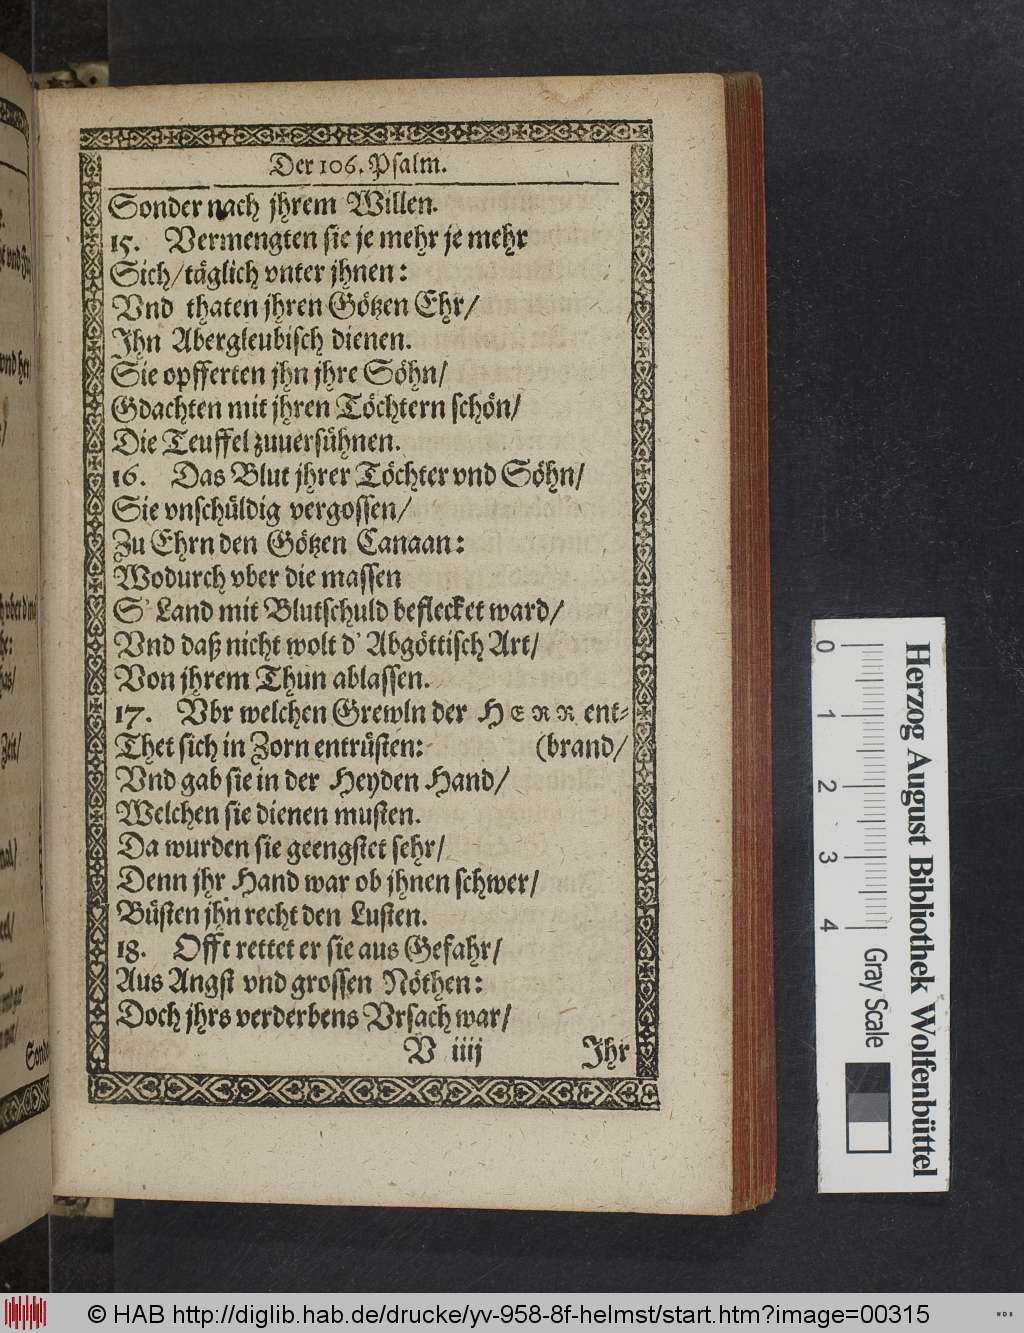 Der 106. Psalm.
Sonder nach jhrem Willen.
15. Vermengten sie je mehr je mehr
Sich/täglich vnter jhnen:
Vnd thaten jhren Götzen Ehr/
Jhn Abergleubisch dienen.
Sie opfferten jhn jhre Söhn/
Gdachten mit jhren Töchtern schön/
Die Teuffel zuuersühnen.
16. Das Blut jhrer Töchter vnd Söhn/
Sie vnschüldig vergossen/
Zu Ehrn den Götzen Canaan:
Wodurch vber die massen
S' Land mit Blutschuld beflecket ward/
Vnd daß nicht wolt d' Abgöttisch Art/
Von jhrem Thun ablassen.
17. Vbr welchen Grewln der HERR ent-
Thet sich in Zorn entrüsten: (brand/
Vnd gab sie in der Heyden Hand/
Welchen sie dienen musten.
Da wurden sie geengstet sehr/
Denn jhr Hand war ob jhnen schwer/
Büsten jhn recht den Lusten.
18. Offt rettet er sie aus Gefahr/
Aus Angst vnd grossen Nöthen:
Doch jhrs verderbens Vrsach war/
V iiij Jhr
Herzog August Bibliothek Wolfenbüttel
0 1 2 3 4 Gray Scale
© HAB http://diglib.hab.de/drucke/yv-958-8f-helmst/start.htm?image=00315